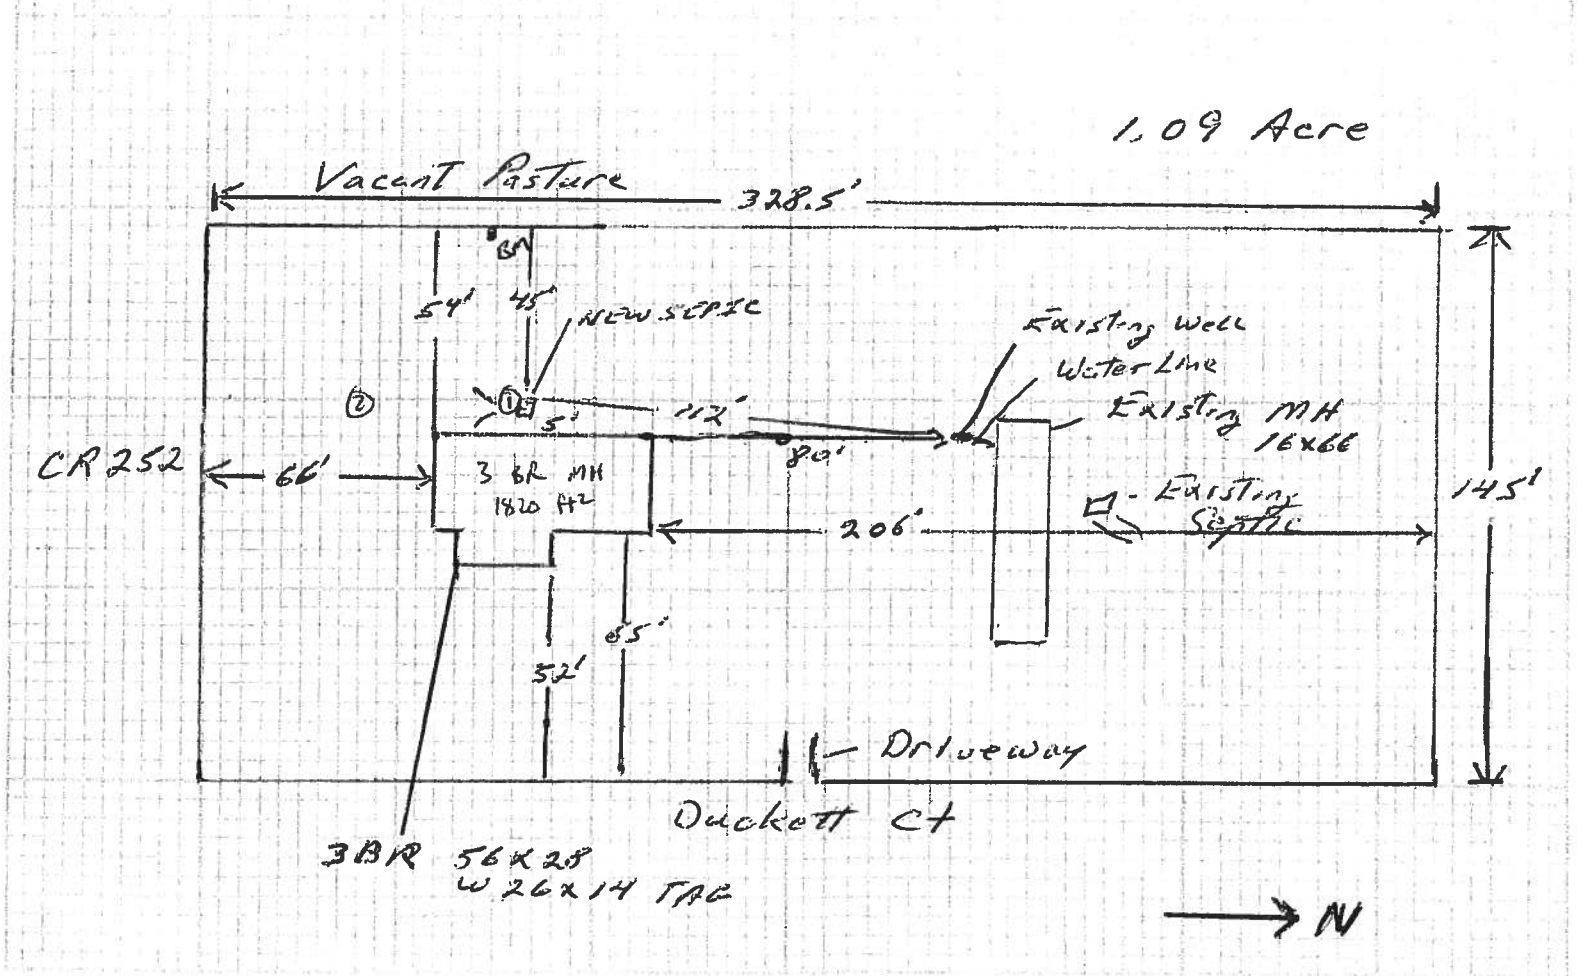 1.09 Acre
Vacant Pasture
328.5'
BM
54'
45'
NEW SEPIC
Existing Well
Water Line
Existing MH
16x66
②
①
5'
112'
80'
CR 252
66'
3 BR MH
1820 ft²
Existing
Septic
145'
206'
65'
52'
Driveway
Duckett Ct
3BR 56x28
W 26x14 TAG
N